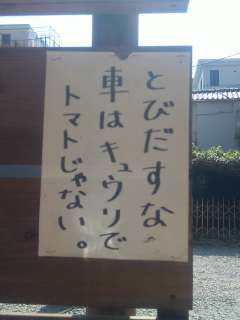 とびだすな
車はキュウリで
トマトじゃない。